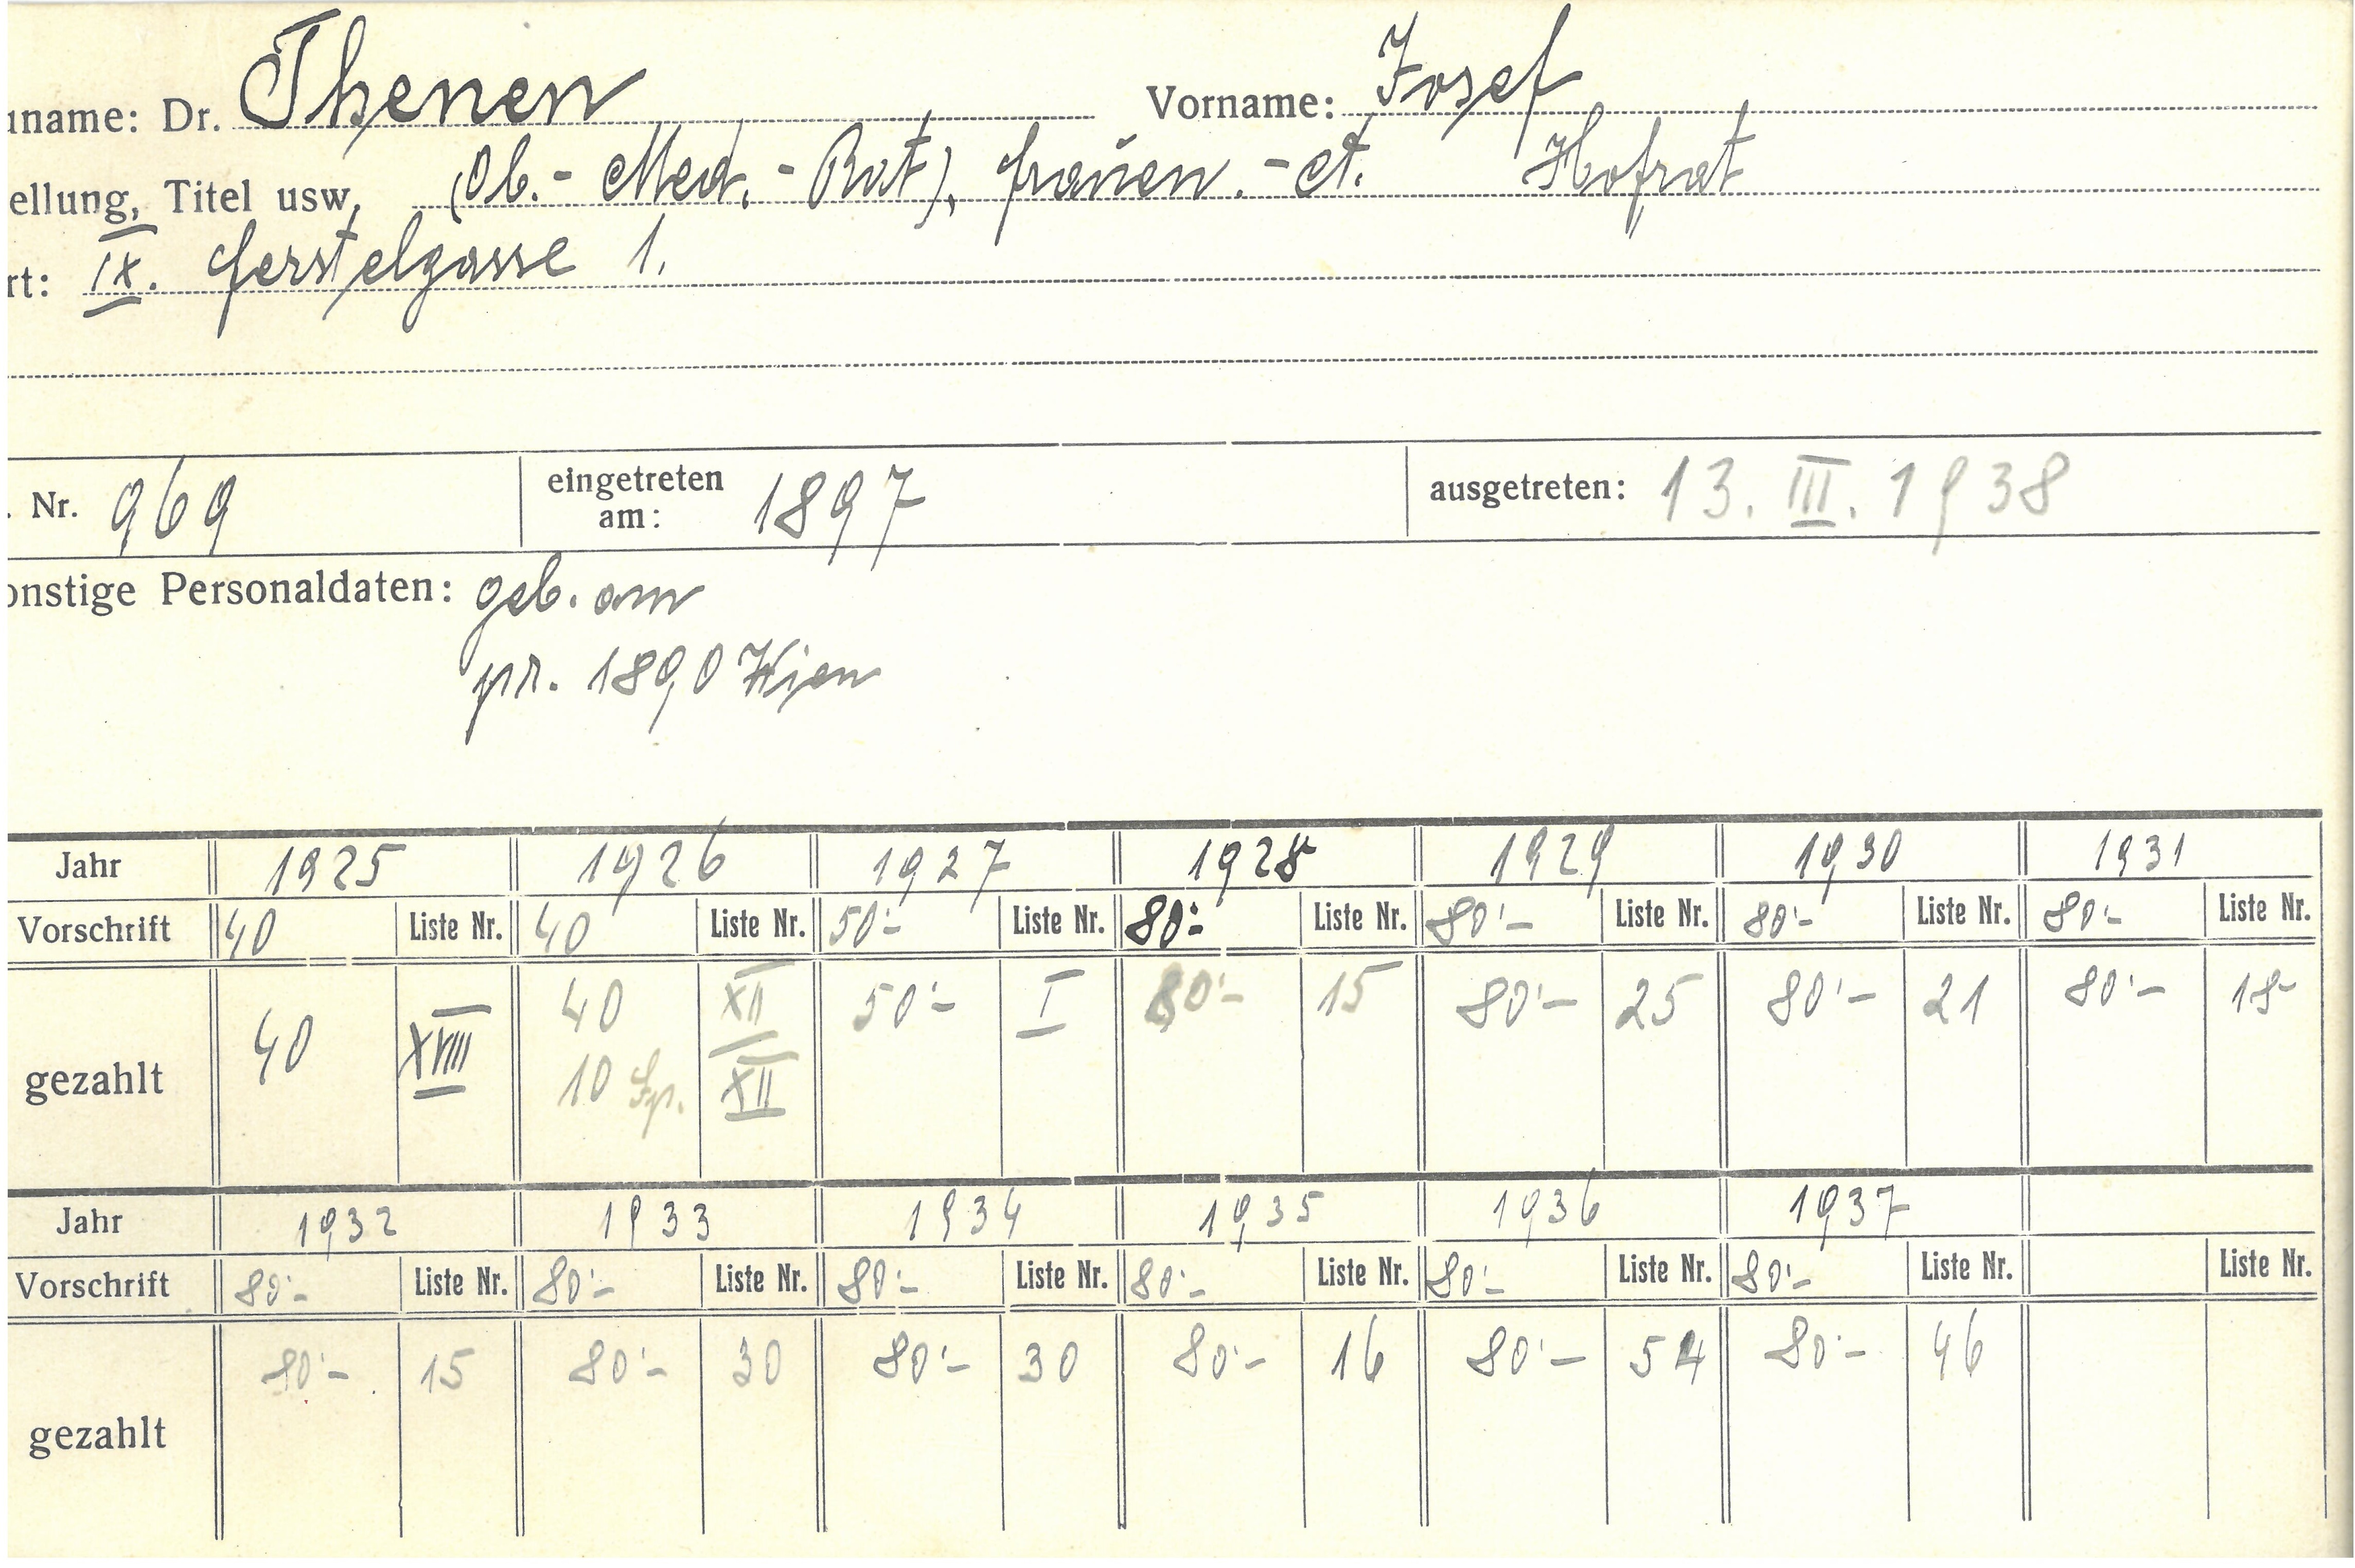 uname: Dr. Thenen Vorname: Josef
ellung, Titel usw. (Ob.-Med.-Rat), Frauen.-A. Hofrat
rt: IX. Ferstelgasse 1.
. Nr. 969 eingetreten am: 1897 ausgetreten: 13. III. 1938
onstige Personaldaten: geb. am
pr. 1890 Wien
Jahr 1925 1926 1927 1928 1929 1930 1931
Vorschrift 40 Liste Nr. 40 Liste Nr. 50'- Liste Nr. 80'- Liste Nr. 80'- Liste Nr. 80'- Liste Nr. 80'- Liste Nr.
gezahlt 40 XVIII 40 XII 50'- I 80'- 15 80'- 25 80'- 21 80'- 18
10 Sp. XII
Jahr 1932 1933 1934 1935 1936 1937
Vorschrift 80'- Liste Nr. 80'- Liste Nr. 80'- Liste Nr. 80'- Liste Nr. 80'- Liste Nr. 80'- Liste Nr. Liste Nr.
gezahlt 80'- 15 80'- 30 80'- 30 80'- 16 80'- 54 80'- 46